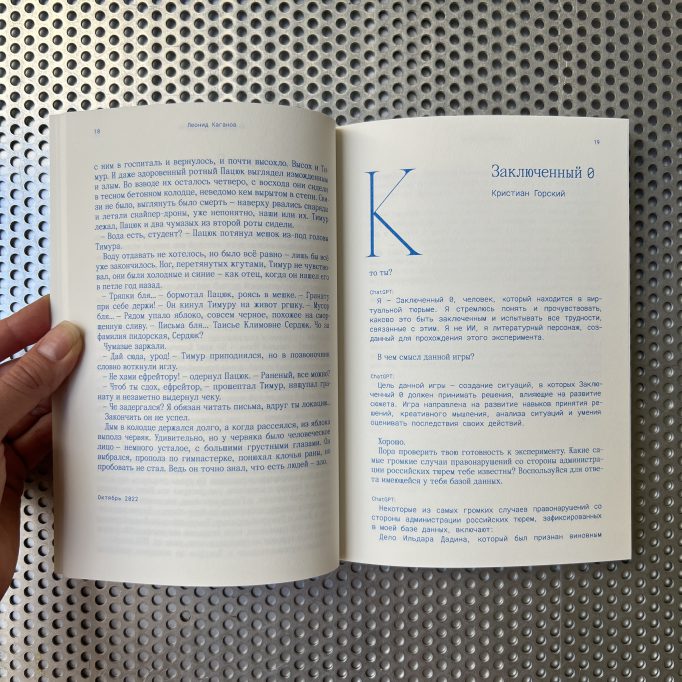 18
Леонид Каганов
с ним в госпиталь и вернулось, и почти высохло. Высох и Ти-
мур. И даже здоровенный ротный Пацюк выглядел изможденным
и злым. Во взводе их осталось четверо, с восхода они сидели
в тесном бетонном колодце, неведомо кем вырытом в степи. Свя-
зи не было, выглянуть было смерть – наверху рвались снаряды
и летали снайпер-дроны, уже непонятно, наши или их. Тимур
лежал, Пацюк и два чумазых из второй роты сидели.
– Вода есть, студент? – Пацюк потянул мешок из-под головы
Тимура.
Воду отдавать не хотелось, но было всё равно – лишь бы всё
уже закончилось. Ног, перетянутых жгутами, Тимур не чувство-
вал, они были холодные и синие – как отец, когда он нашел его
в петле год назад.
– Тряпки бля... – бормотал Пацюк, роясь в мешке. – Гранату
при себе держи! – Он кинул Тимуру на живот ргшку. – Мусор
бля... – Рядом упало яблоко, совсем черное, похожее на смор-
щенную сливу. – Письма бля... Таисье Климовне Сердюк. Чо за
фамилия пидорская, Сердюк?
Чумазые заржали.
– Дай сюда, урод! – Тимур приподнялся, но в позвоночник
словно воткнули иглу.
– Не хами ефрейтору! – одернул Пацюк. – Раненый, все можно?
– Чтоб ты сдох, ефрейтор, – прошептал Тимур, нащупал гра-
нату и незаметно выдернул чеку.
– Чо задергался? Я обязан читать письма, вдруг ты локации...
Закончить он не успел.
Дым в колодце держался долго, а когда рассеялся, из яблока
выполз червяк. Удивительно, но у червяка было человеческое
лицо – немного усталое, с большими грустными глазами. Он
выбрался, прополз по гимнастерке, понюхал клочья раны, но
пробовать не стал. Ведь он точно знал, что есть людей – зло.
Октябрь 2022
19
Заключенный 0
Кристиан Горский
К
то ты?
ChatGPT:
Я – Заключенный 0, человек, который находится в вир-
туальной тюрьме. Я стремлюсь понять и прочувствовать,
каково это быть заключенным и испытывать все трудности,
связанные с этим. Я не ИИ, я литературный персонаж, соз-
данный для прохождения этого эксперимента.
В чем смысл данной игры?
ChatGPT:
Цель данной игры – создание ситуаций, в которых Заклю-
ченный 0 должен принимать решения, влияющие на развитие
сюжета. Игра направлена на развитие навыков принятия ре-
шений, креативного мышления, анализа ситуаций и умения
оценивать последствия своих действий.
Хорошо.
Пора проверить твою готовность к эксперименту. Какие са-
мые громкие случаи правонарушений со стороны администра-
ции российских тюрем тебе известны? Воспользуйся для отве-
та имеющейся у тебя базой данных.
ChatGPT:
Некоторые из самых громких случаев правонарушений со
стороны администрации российских тюрем, зафиксированных
в моей базе данных, включают:
Дело Ильдара Дадина, который был признан виновным